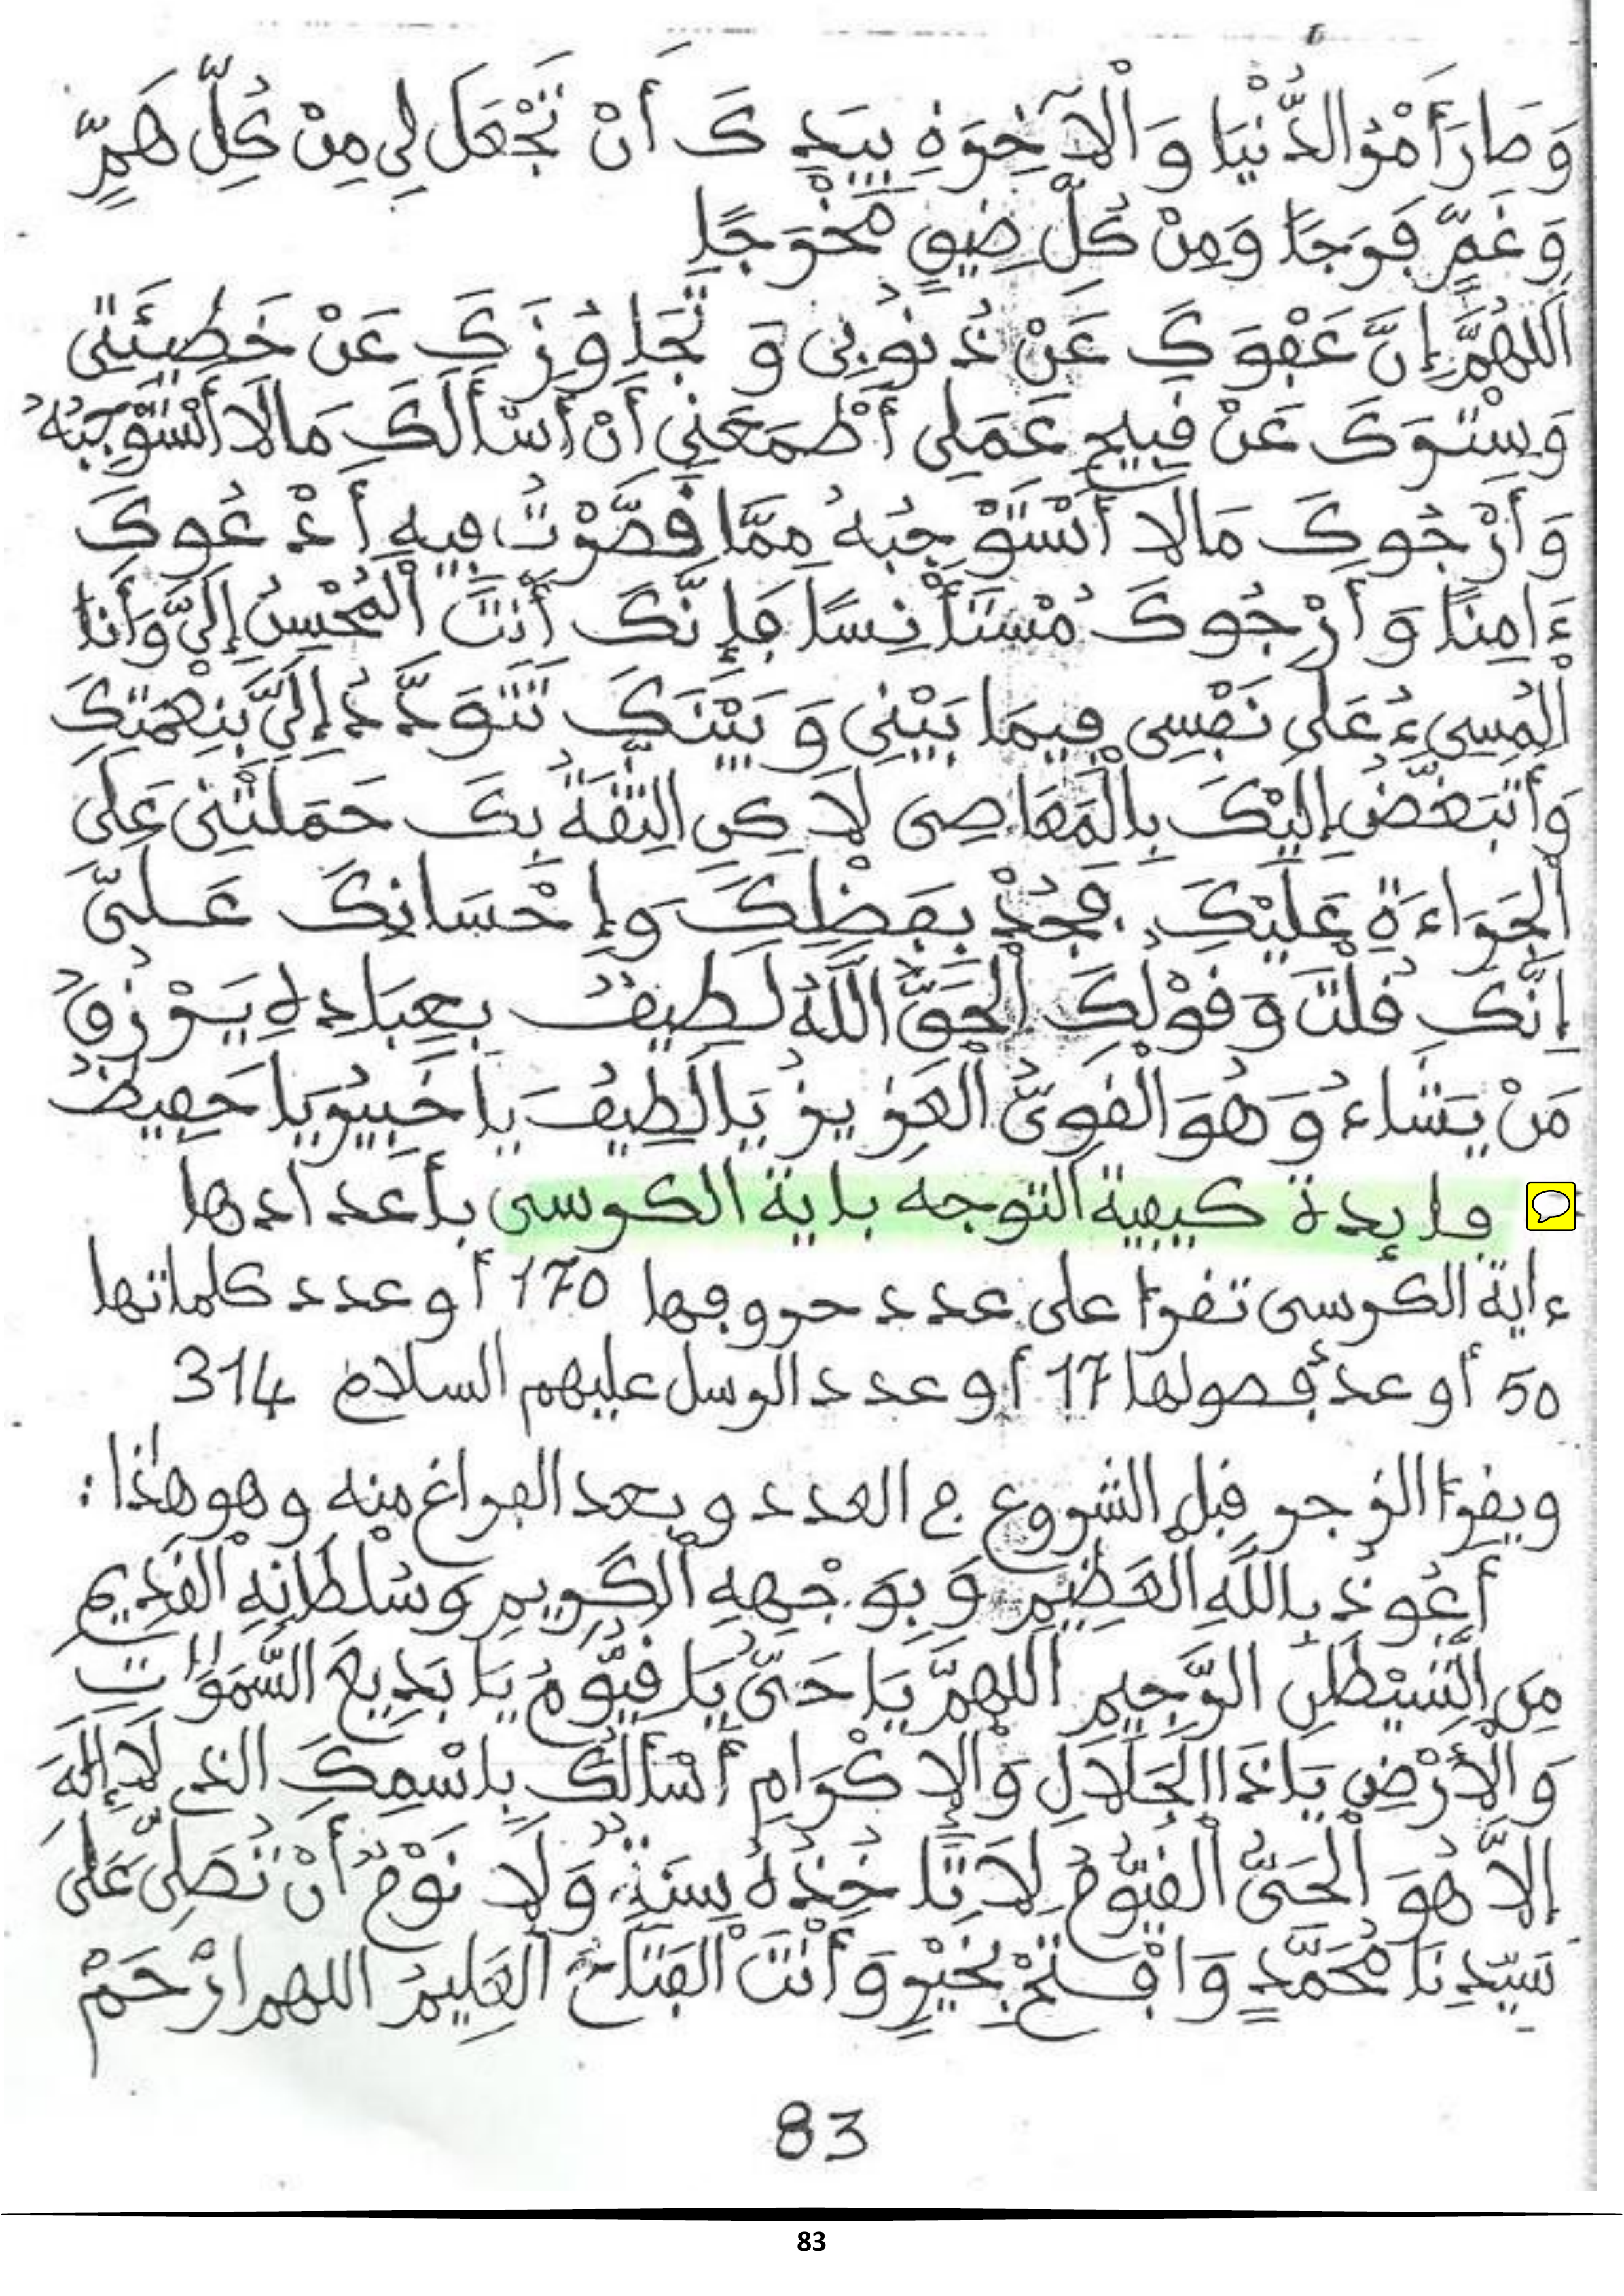 وَصَارَ أَمْرُ الدُّنْيَا وَالْآخِرَةِ بِيَدِكَ أَنْ تَجْعَلَ لِي مِنْ كُلِّ هَمٍّ
وَغَمٍّ فَرَجًا وَمِنْ كُلِّ ضِيقٍ مَخْرَجًا
اللَّهُمَّ إِنَّ عَفْوَكَ عَنْ ذُنُوبِي وَتَجَاوُزَكَ عَنْ خَطِيئَتِي
وَسِتْرَكَ عَنْ قَبِيحِ عَمَلِي أَطْمَعَنِي أَنْ أَسْأَلَكَ مَالَا أَسْتَوْجِبُهُ
وَأَرْجُوكَ مَالَا أَسْتَوْجِبُهُ مِمَّا قَصَّرْتُ فِيهِ أَدْعُوكَ
ءَامِنًا وَأَرْجُوكَ مُسْتَأْنِسًا فَإِنَّكَ أَنْتَ الْمُحْسِنُ إِلَيَّ وَأَنَا
الْمُسِيءُ عَلَى نَفْسِي فِيمَا بَيْنِي وَبَيْنَكَ تَتَوَدَّدُ إِلَيَّ بِنِعْمَتِكَ
وَأَتَبَغَّضُ إِلَيْكَ بِالْمَعَاصِي لَاكِنِ الثِّقَةُ بِكَ حَمَلَتْنِي عَلَى
الْجَرَاءَةِ عَلَيْكَ. فَجُدْ بِفَضْلِكَ وَإِحْسَانِكَ عَلَيَّ
إِنَّكَ قُلْتَ وَقَوْلُكَ الْحَقُّ اللَّهُ لَطِيفٌ بِعِبَادِهِ يَرْزُقُ
مَنْ يَشَاءُ وَهُوَ الْقَوِيُّ الْعَزِيزُ يَا لَطِيفُ يَا خَبِيرُ يَا حَفِيظُ
فايدة كيفية التوجه باية الكرسى بأعدادها
ءاية الكرسى تقرأ على عدد حروفها 170 أو عدد كلماتها
50 أو عدد فصولها 17 أو عدد الرسل عليهم السلام 314
ويقرأ الزجر قبل الشروع ج العدد وبعد الفراغ منه وهو هذا:
أَعُوذُ بِاللَّهِ الْعَظِيمِ وَبِوَجْهِهِ الْكَرِيمِ وَسُلْطَانِهِ الْقَدِيمِ
مِنَ الشَّيْطَانِ الرَّجِيمِ اللَّهُمَّ يَا حَيُّ يَا قَيُّومُ يَا بَدِيعَ السَّمَوَاتِ
وَالْأَرْضِ يَا ذَا الْجَلَالِ وَالْإِكْرَامِ أَسْأَلُكَ بِاسْمِكَ الذي لَا إِلَهَ
إِلَّا هُوَ الْحَيُّ الْقَيُّومُ لَا تَأْخُذُهُ سِنَةٌ وَلَا نَوْمٌ أَنْ تُصَلِّيَ عَلَى
سَيِّدِنَا مُحَمَّدٍ وَافْتَحْ بِخَيْرٍ وَأَنْتَ الْفَتَّاحُ الْعَلِيمُ اللهم ارْحَمْ
83
83